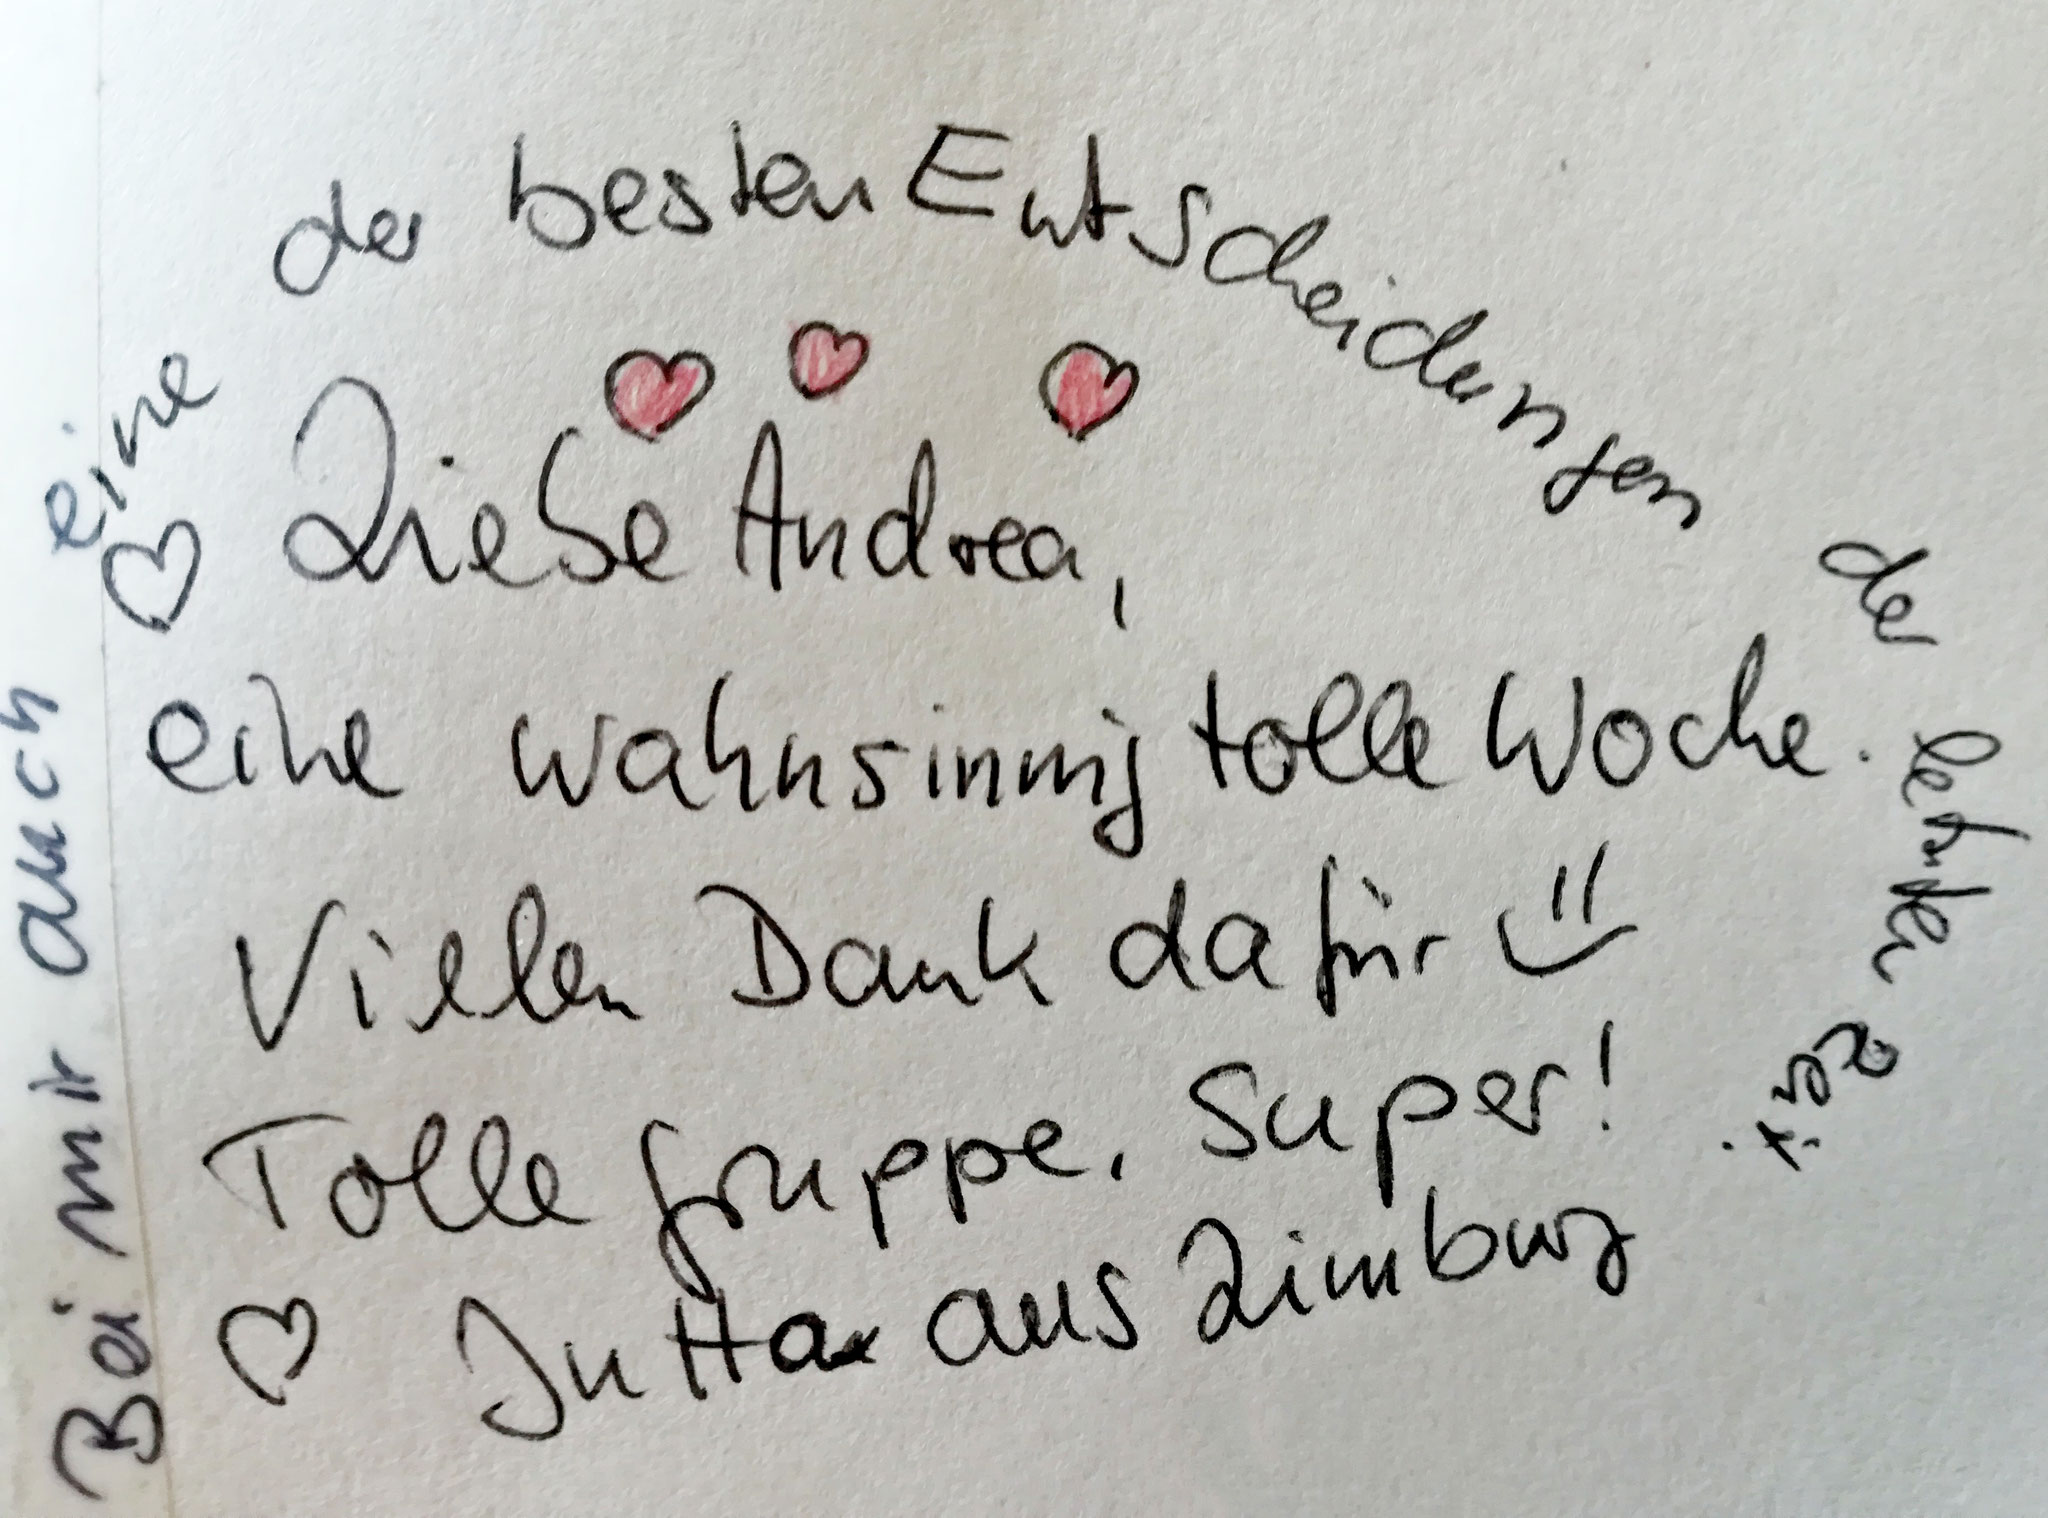 Bei mir auch eine der besten Entscheidungen der letzten Zeit.
Liebe Andrea,
eine wahnsinnig tolle Woche.
Vielen Dank dafür
Tolle Gruppe. Super!
Jutta aus Limburg